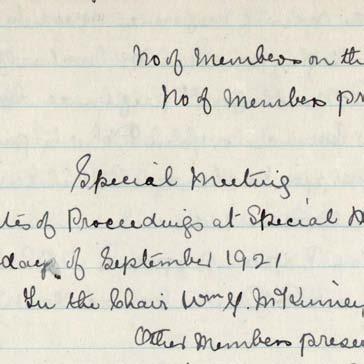 No of Members on the
No of Members pr
Special Meeting
tes of Proceedings at Special M
day of September 1921
In the Chair Wm G. McKinney
Other Members presen